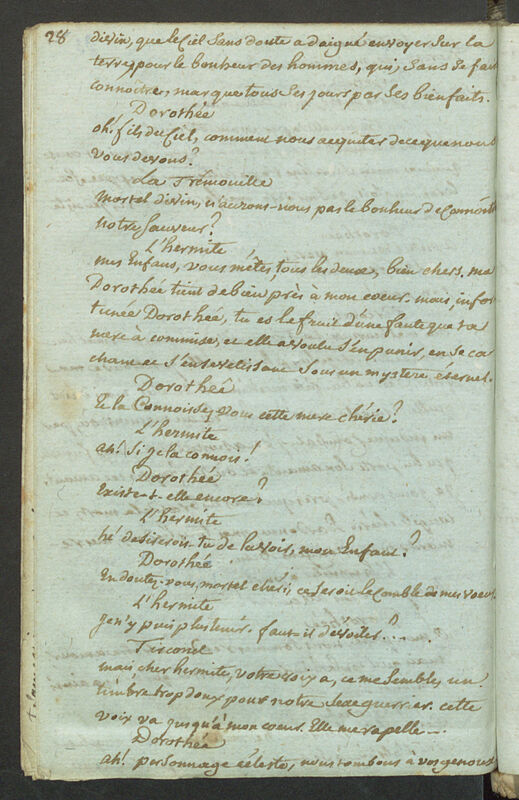 28
divin, que le Ciel sans doute a daigné envoyer sur la
terre, pour le bonheur des hommes, qui, sans se faire
connoître, marque tous ses jours par ses bienfaits.
Dorothée
oh! fils du Ciel, comment nous acquiter de ce que nous
vous devons?
La Trémouille
mortel divin, n'aurons-nous pas le bonheur de connoître
notre sauveur?
L'hermite
mes Enfans, vous m'êtes tous les deux, bien chers, ma
Dorothée tient de bien près à mon coeur. mais, infor
tunée Dorothée, tu es le fruit d'une faute que ta
mere à commise, et elle a voulu s'en punir, en se ca
chant et s'ensevelissant sous un mystere eternel.
Dorothée
Et la Connoissez vous cette mere chérie?
L'hermite
ah! si je la connois!
Dorothée
Existe-t-elle encore?
L'hermite
hé desirerois-tu de la voir, mon Enfant?
Dorothée
En doutez-vous, mortel cheri, ce seroit le Comble de mes voeux.
L'hermite
je n'y puis plus tenir. faut-il dévoiler...?
Tirconel
mais cher hermite, votre voix a, ce me semble, un
timbre trop doux pour notre sexe guerrier. cette
voix va jusqu'à mon coeur. Elle me rapelle...
Dorothée
ah! personnage céleste, nous tombons à vos genoux